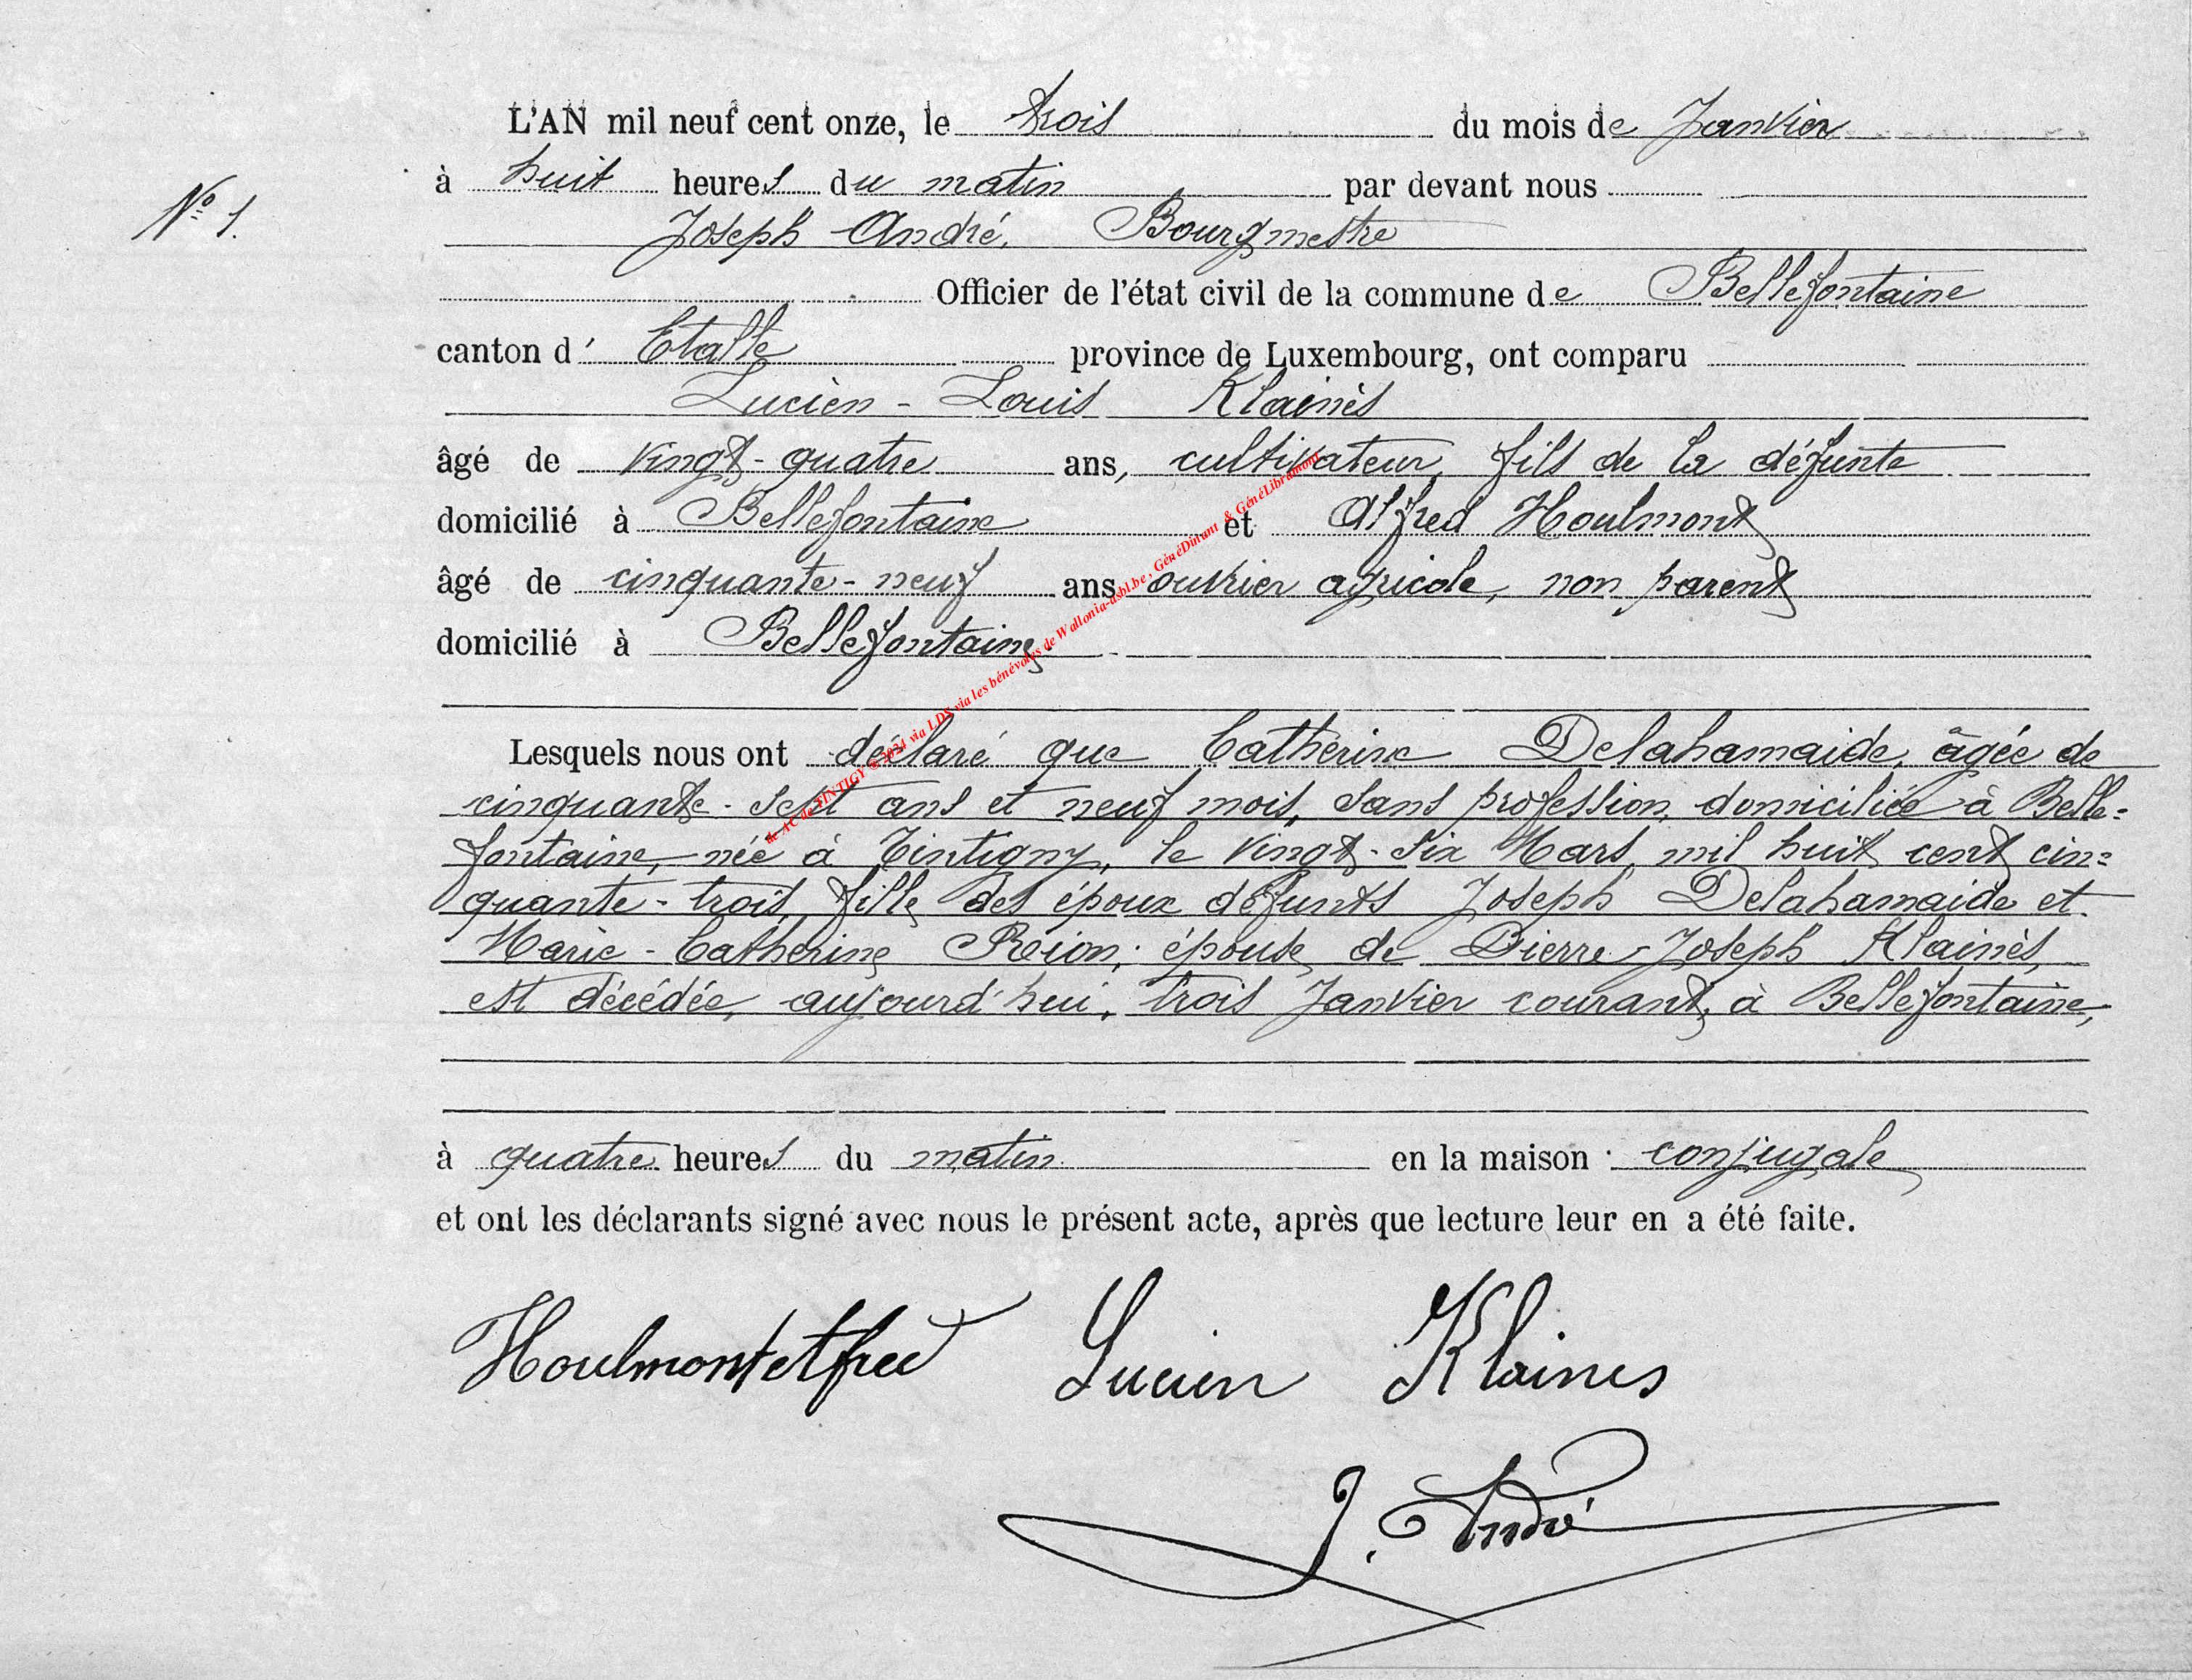 L'AN mil neuf cent onze, le trois du mois de Janvier
à huit heures du matin par devant nous
N° 1.
Joseph André, Bourgmestre
Officier de l'état civil de la commune de Bellefontaine
canton d' Etalle province de Luxembourg, ont comparu
Lucien - Louis Klainès
âgé de vingt-quatre ans, cultivateur, fils de la défunte
domicilié à Bellefontaine et Alfred Houlmont
âgé de cinquante-neuf ans ouvrier agricole, non parent
domicilié à Bellefontaine
de AC de TINTIGY © 2024 via LDS via les bénévoles de Wallonia-asbl.be, GénéDinant & GénéLibramont
Lesquels nous ont déclaré que Catherine Delahamaide, âgée de
cinquante-sept ans et neuf mois, sans profession, domiciliée à Belle=
fontaine, née à Tintigny, le vingt-six Mars mil huit cent cin=
quante-trois, fille des époux défunts Joseph Delahamaide et
Marie-Catherine Reion; épouse de Pierre-Joseph Klainès,
est décédée, aujourd'hui, trois Janvier courant, à Bellefontaine,
à quatre heures du matin en la maison conjugale
et ont les déclarants signé avec nous le présent acte, après que lecture leur en a été faite.
Houlmont Alfred Lucien Klaines
J. André